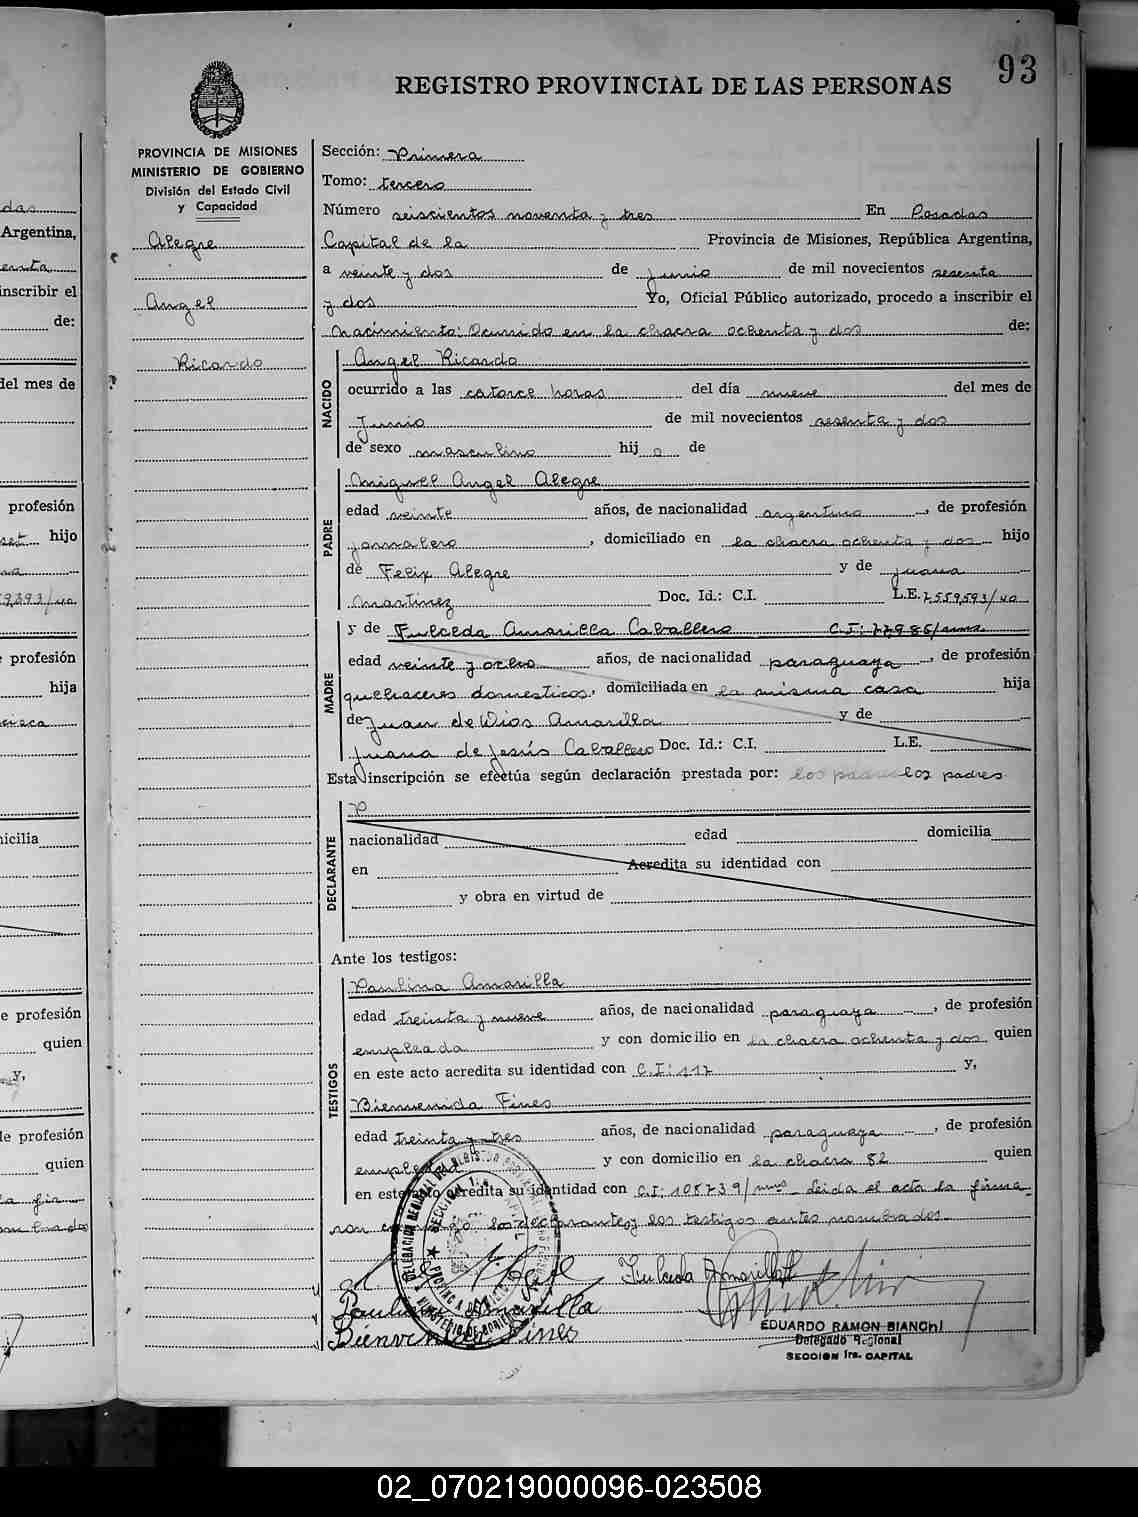 93
REGISTRO PROVINCIAL DE LAS PERSONAS
PROVINCIA DE MISIONES
MINISTERIO DE GOBIERNO
División del Estado Civil
y Capacidad
Alegre
Angel
Ricardo
Sección: Primera
Tomo: tercero
Número seiscientos noventa y tres En Posadas
Capital de la Provincia de Misiones, República Argentina,
a veinte y dos de Junio de mil novecientos sesenta
y dos Yo, Oficial Público autorizado, procedo a inscribir el
Nacimiento: Ocurrido en la chacra ochenta y dos de:
NACIDO
Angel Ricardo
ocurrido a las catorce horas del día nueve del mes de
Junio de mil novecientos sesenta y dos
de sexo masculino hij o de
PADRE
Miguel Angel Alegre
edad veinte años, de nacionalidad argentino, de profesión
jornalero, domiciliado en la chacra ochenta y dos hijo
de Felix Alegre y de Juana
Martinez Doc. Id.: C.I. L.E. 7559593/
MADRE
y de Fulceda Amarilla Caballero C.I: 77985/
edad veinte y ocho años, de nacionalidad paraguaya, de profesión
quehaceres domesticos, domiciliada en la misma casa hija
de Juan de Dios Amarilla y de
Juana de Jesús Caballero Doc. Id.: C.I. L.E.
Esta inscripción se efectúa según declaración prestada por: los padres los padres
DECLARANTE
P
nacionalidad edad domicilia
en Acredita su identidad con
y obra en virtud de
Ante los testigos:
TESTIGOS
Paulina Amarilla
edad treinta y nueve años, de nacionalidad paraguaya, de profesión
empleada y con domicilio en la chacra ochenta y dos quien
en este acto acredita su identidad con C.I: 117 y,
Bienvenida Fines
edad treinta y tres años, de nacionalidad paraguaya, de profesión
y con domicilio en la chacra 82 quien
en este acto acredita su identidad con C.I: 108739/ Leida el acta la firma
ron los declarantes y los testigos antes nombrados.
Fulceda Amarilla
Paulina Amarilla
Bienvenida Fines
EDUARDO RAMON BIANCHI
Delegado Regional
SECCION 1ra. CAPITAL
02_070219000096-023508